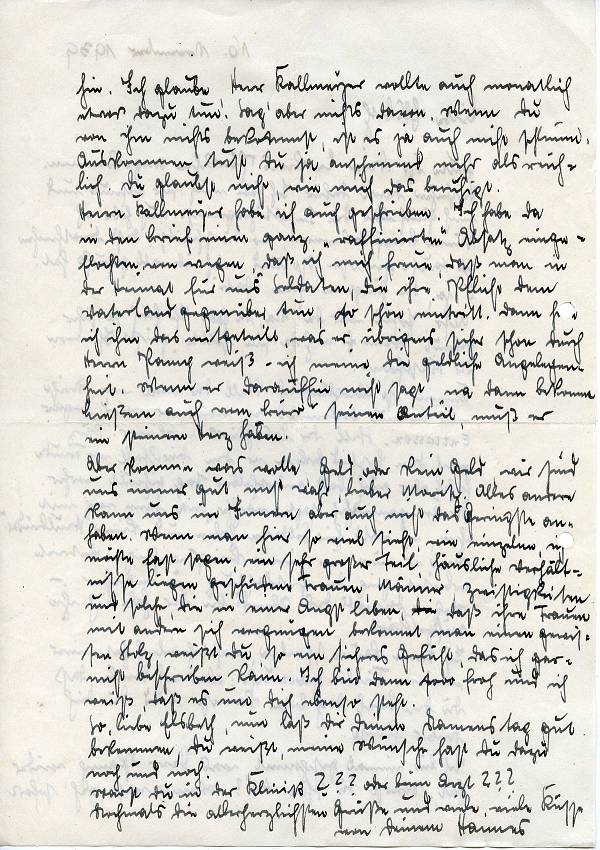 hin. Ich glaube Herr Kallmeyer wollte auch monatlich
etwas dazu tun. Sag' aber nichts davon. Wenn Du
von ihm nichts bekommst, ist es ja auch nicht schlimm.
Auskommen tust Du ja anscheinend mehr als reich-
lich. Du glaubst nicht, wie mich das beruhigt.
Herrn Kallmeyer habe ich auch geschrieben. Ich habe da
in den Brief einen ganz „raffinierten“ Absatz einge-
flochten, von wegen, daß ich mich freue, daß man in
der Heimat für uns Soldaten, die ihre Pflicht dem
Vaterland gegenüber tun, so schön eintritt. Dann habe
ich ihm das mitgeteilt, was er übrigens sicher schon durch
Herrn weiß - ich meine die geldliche Angelegen-
heit. Wenn er daraufhin nichts sagt, na dann
auch vom seinen Anteil, muß er
ein steinern Herz haben.
Aber komme was wolle Geld oder kein Geld wir sind
uns immer gut, nicht wahr, lieber Alles andere
kann uns im Innern aber auch nicht das Geringste an-
haben. Wenn man hier so viel sieht, wie einzelne, ich
möchte fast sagen, ein sehr großer Teil, häusliche Verhält-
nisse liegen, geschiedene Frauen, Männer, Zwistigkeiten
und solche, die in einer Angst leben, daß ihre Frauen
mit andern sich vergnügen bekommt man einen gewis-
sen Stolz weißt Du so ein sicheres Gefühl, das ich gar-
nicht beschreiben kann. Ich bin dann froh und ich
weiß, daß es um Dich ebenso steht.
So, liebe Elsbeth, nun laß Dir Deinen Namenstag gut
bekommen, Du weißt, meine Wünsche hast Du dazu
noch und noch.
Warst Du in der Klinik ? ? ? oder beim Arzt ? ? ?
Nochmals die allerherzlichsten Grüße und viele, viele Küsse
von Deinem Hannes